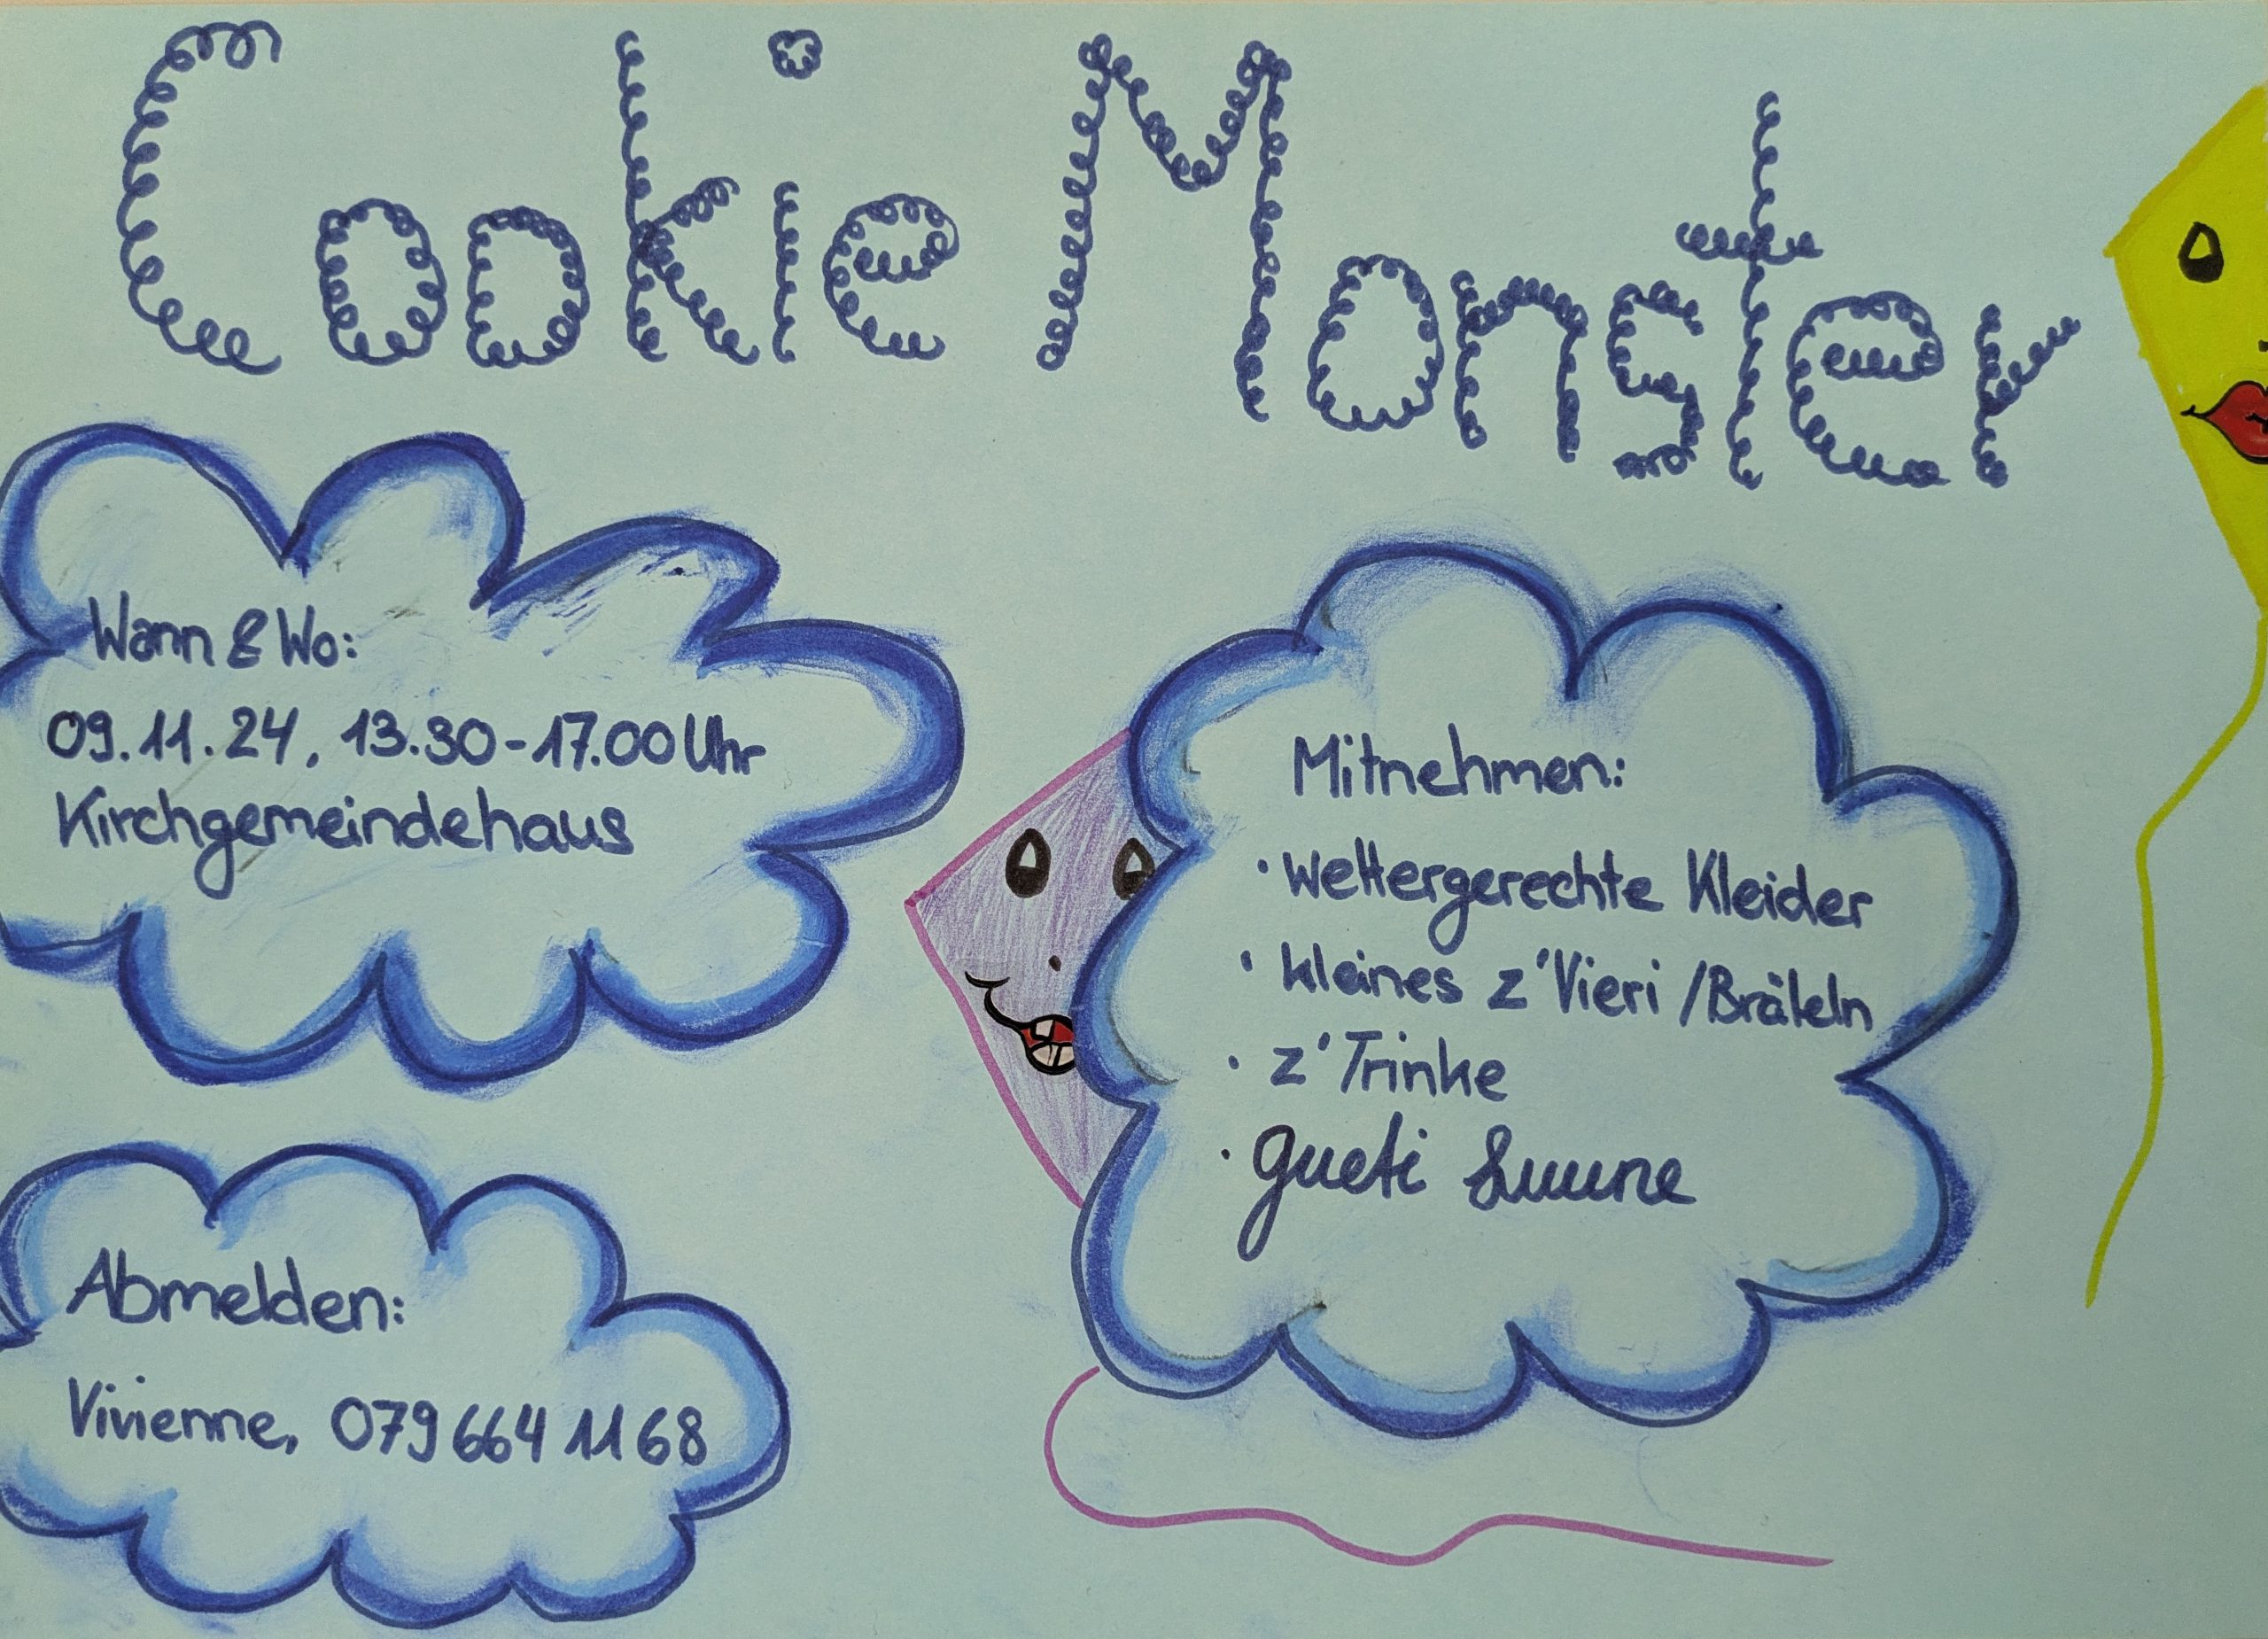 Cookie Monster
Wann & Wo:
09.11.24, 13.30-17.00 Uhr
Kirchgemeindehaus
Mitnehmen:
· wettergerechte Kleider
· kleines z'Vieri /Bräteln
· z'Trinke
· gueti Luune
Abmelden:
Vivienne, 079 664 11 68